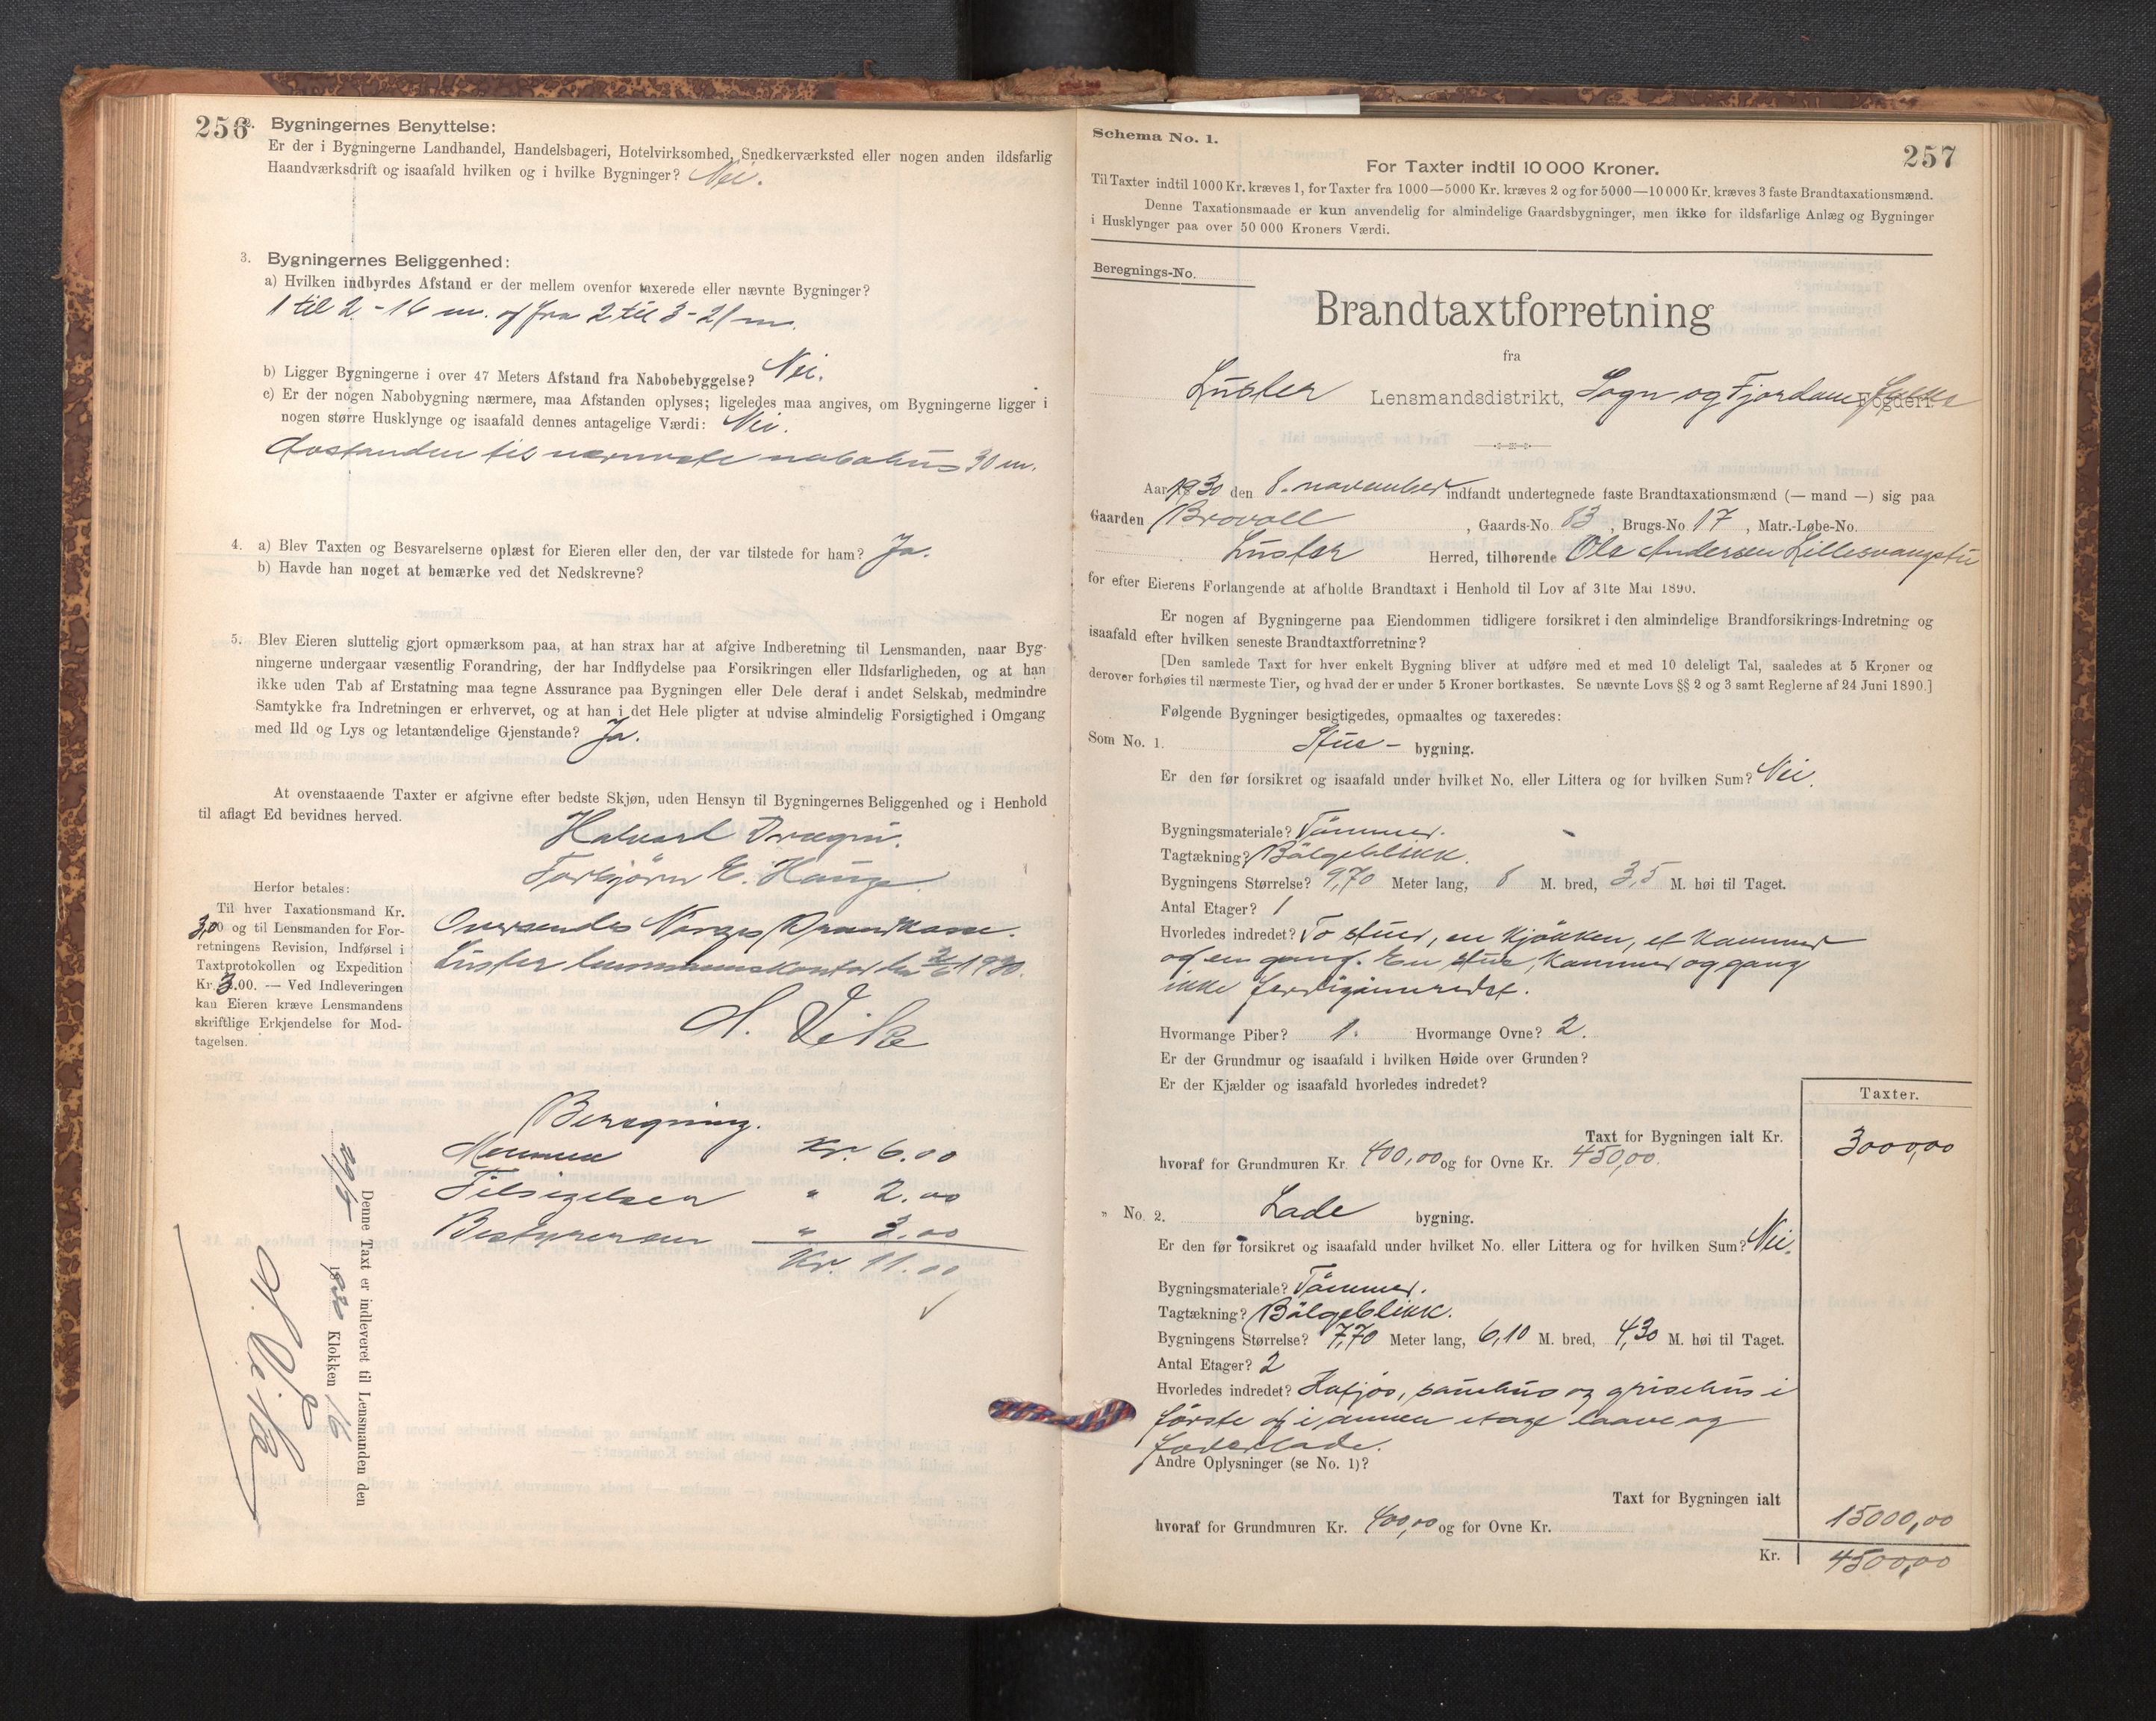 256
2. Bygningernes Benyttelse:
Er der i Bygningerne Landhandel, Handelsbageri, Hotelvirksomhed, Snedkerværksted eller nogen anden ildsfarlig
Haandværksdrift og isaafald hvilken og i hvilke Bygninger? Nei.
3. Bygningernes Beliggenhed:
a) Hvilken indbyrdes Afstand er der mellem ovenfor taxerede eller nævnte Bygninger?
1 til 2 - 16 m. og fra 2 til 3 - 21 m.
b) Ligger Bygningerne i over 47 Meters Afstand fra Nabobebyggelse? Nei.
c) Er der nogen Nabobygning nærmere, maa Afstanden oplyses; ligeledes maa angives, om Bygningerne ligger i
nogen større Husklynge og isaafald dennes antagelige Værdi: Nei.
Avstanden til nærmeste nabohus 30 m.
4. a) Blev Taxten og Besvarelserne oplæst for Eieren eller den, der var tilstede for ham? Ja.
b) Havde han noget at bemærke ved det Nedskrevne?
5. Blev Eieren sluttelig gjort opmærksom paa, at han strax har at afgive Indberetning til Lensmanden, naar Byg-
ningerne undergaar væsentlig Forandring, der har Indflydelse paa Forsikringen eller Ildsfarligheden, og at han
ikke uden Tab af Erstatning maa tegne Assurance paa Bygningen eller Dele deraf i andet Selskab, medmindre
Samtykke fra Indretningen er erhvervet, og at han i det Hele pligter at udvise almindelig Forsigtighed i Omgang
med Ild og Lys og letantændelige Gjenstande? Ja.
At ovenstaaende Taxter er afgivne efter bedste Skjøn, uden Hensyn til Bygningernes Beliggenhed og i Henhold
til aflagt Ed bevidnes herved.
Halvard Drægni.
Torbjørn E. Hauge
Herfor betales:
Til hver Taxationsmand Kr.
3,00 og til Lensmanden for For-
retningens Revision, Indførsel i
Taxtprotokollen og Expedition
Kr. 3.00. — Ved Indleveringen
kan Eieren kræve Lensmandens
skriftlige Erkjendelse for Mod-
tagelsen.
Oversendes Norges Brannkasse.
Luster lensmannskontor den 1930.
H. Vike
Beregning.
Mennene Kr. 6.00
Tilsigelsen " 2.00
Bestyreren " 3.00
Kr. 11.00
Denne Taxt er indleveret til Lensmanden den
1930 Klokken 16
H. Vike
Schema No. 1.
257
For Taxter indtil 10 000 Kroner.
Til Taxter indtil 1000 Kr. kræves 1, for Taxter fra 1000—5000 Kr. kræves 2 og for 5000—10 000 Kr. kræves 3 faste Brandtaxationsmænd.
Denne Taxationsmaade er kun anvendelig for almindelige Gaardsbygninger, men ikke for ildsfarlige Anlæg og Bygninger
i Husklynger paa over 50 000 Kroners Værdi.
Beregnings-No.
Brandtaxtforretning
fra
Luster Lensmandsdistrikt, Sogn og Fjordane Fogderi.
Aar 1930 den 8. november indfandt undertegnede faste Brandtaxationsmænd (— mand —) sig paa
Gaarden Brovoll, Gaards-No. 83, Brugs-No 17, Matr.-Løbe-No.
Luster Herred, tilhørende Ole Andersen Lillesvangstu
for efter Eierens Forlangende at afholde Brandtaxt i Henhold til Lov af 31te Mai 1890.
Er nogen af Bygningerne paa Eiendommen tidligere forsikret i den almindelige Brandforsikrings-Indretning og
isaafald efter hvilken seneste Brandtaxtforretning?
[Den samlede Taxt for hver enkelt Bygning bliver at udføre med et med 10 deleligt Tal, saaledes at 5 Kroner og
derover forhøies til nærmeste Tier, og hvad der er under 5 Kroner bortkastes. Se nævnte Lovs §§ 2 og 3 samt Reglerne af 24 Juni 1890.]
Følgende Bygninger besigtigedes, opmaaltes og taxeredes:
Som No. 1. Stue - bygning.
Er den før forsikret og isaafald under hvilket No. eller Littera og for hvilken Sum? Nei.
Bygningsmateriale? Tømmer.
Tagtækning? Bølgeblikk.
Bygningens Størrelse? 9,70 Meter lang, 8 M. bred, 3,5 M. høi til Taget.
Antal Etager? 1
Hvorledes indredet? To stuer, en kjøkken, et kammer
og en gang. En stue, kammer og gang
ikke ferdiginnredet.
Hvormange Piber? 1. Hvormange Ovne? 2.
Er der Grundmur og isaafald i hvilken Høide over Grunden?
Er der Kjælder og isaafald hvorledes indredet?
Taxter.
Taxt for Bygningen ialt Kr. 3000,00
hvoraf for Grundmuren Kr. 400,00 og for Ovne Kr. 450,00.
" No. 2. Lade bygning.
Er den før forsikret og isaafald under hvilket No. eller Littera og for hvilken Sum? Nei.
Bygningsmateriale? Tømmer.
Tagtækning? Bølgeblikk.
Bygningens Størrelse? 7,70 Meter lang, 6,10 M. bred, 4,30 M. høi til Taget.
Antal Etager? 2
Hvorledes indredet? og grisehus i
første og i annen etage laave og
foderlade.
Andre Oplysninger (se No. 1)?
Taxt for Bygningen ialt 15000,00
hvoraf for Grundmuren Kr. 400,00 og for Ovne Kr.
Kr. 4500,00